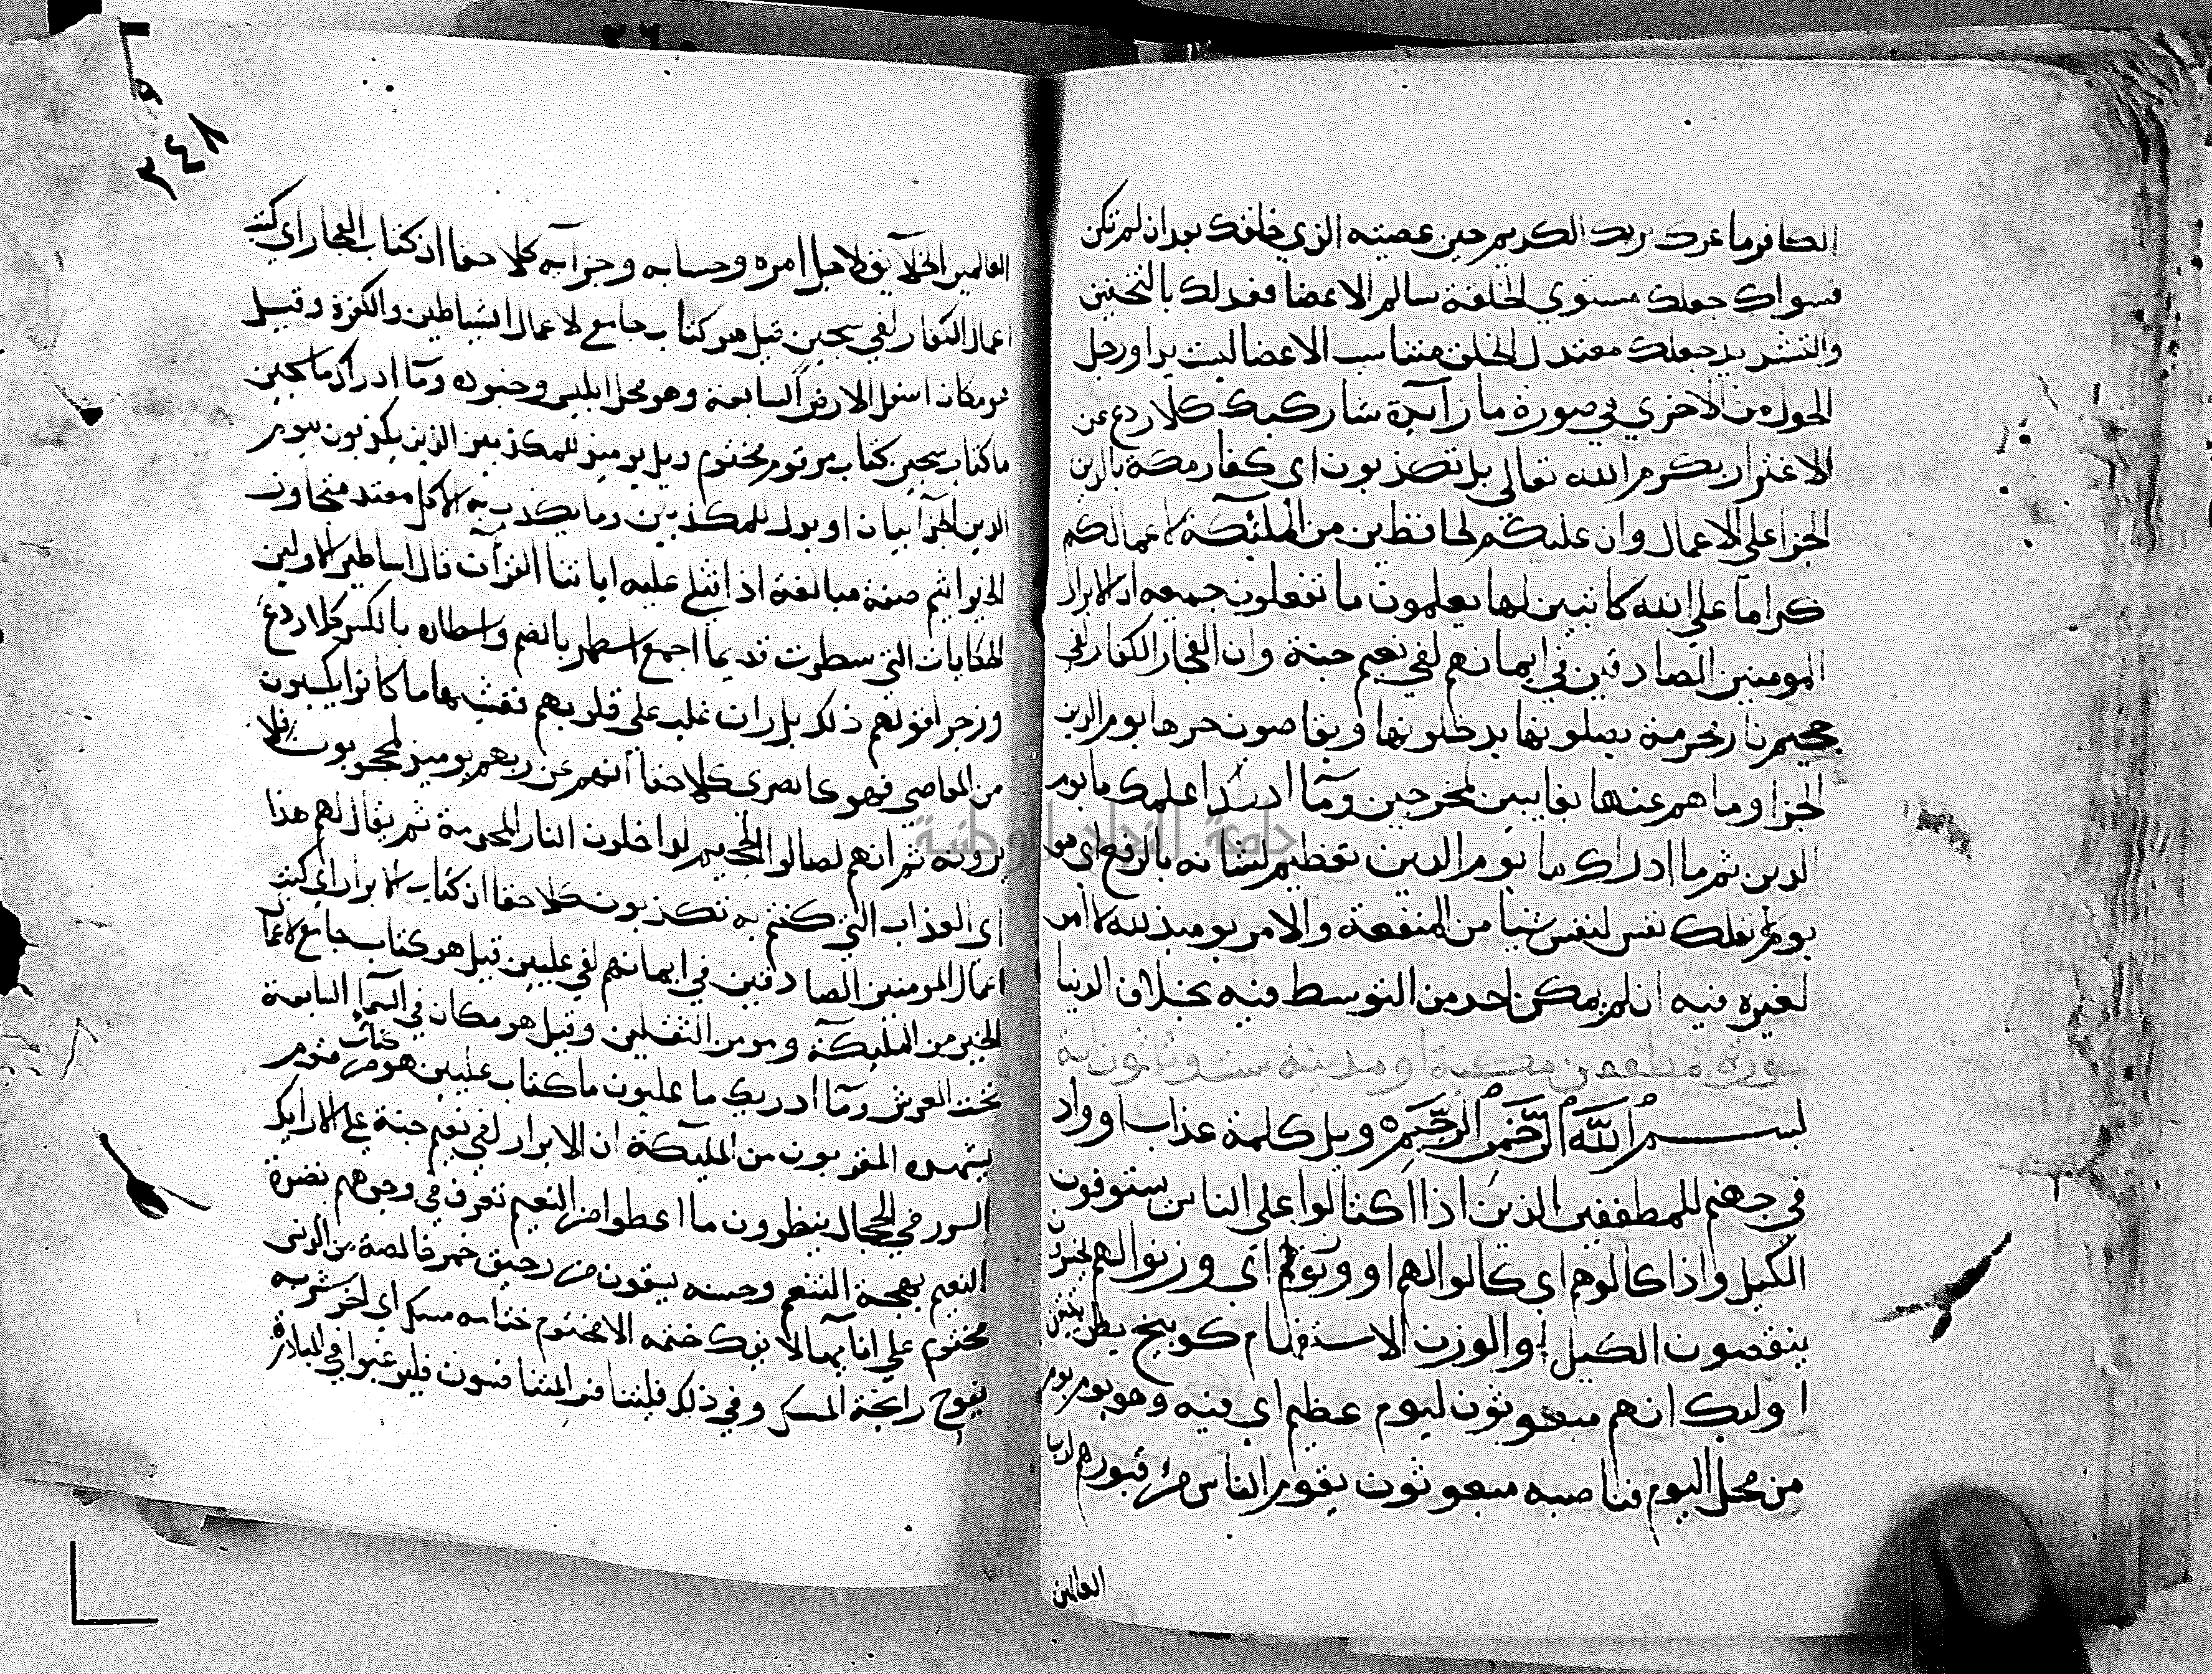 الكافر ما غرك بربك الكريم حين عصيته الذي خلقك بعد ان لم تكن
فسواك جعلك مستوي الخلقة سالم الاعضا فعدلك بالتخفيف
والتشديد جعلك معتدل الخلق متناسب الاعضا ليست يد او رجل
اطول من الاخري في صورة ما زآيدة شا ركبك كلا ردع عن
الاغترار بكرم الله تعالي بل تكذبون اي كفار مكة بالدين
الجزا علي الاعمال وان عليكم لحافظين من الملئكة لاعمالكم
كراما علي الله كاتبين لها يعلمون ما تفعلون جميعه ان الابرار
المومنين الصادقين في ايمانهم لفي نعيم جنة وان الفجار الكفار لفي
جحيم نار محرقة يصلونها يدخلونها ويقاصون حرها يوم الدين
الجزا وما هم عنها بغايبين بمخرجين ومآ ادريك اعلمك ما يوم
الدين ثم ما ادراك ما يوم الدين تعظيم لشانه بالرفع اي هو
يوم لا تملك نفس لنفس شيا من المنفعة والامر يوميذ لله لا امر
لغيره فيه اي لم يمكن احد من التوسط فيه بخلاف الدنيا
سورة المطففين مكية او مدنية ست وثلثون اية
بسم الله الرحمن الرحيم ويل كلمة عذاب او واد
في جهنم للمطففين الذين اذا اكتالوا علي الناس يستوفون
الكيل واذا كالوهم اي كالوا لهم او وزنوهم اي وزنوا لهم يخسرون
ينقصون الكيل او الوزن الا استفهام توبيخ يظن يتيقن
اوليك انهم مبعوثون ليوم عظيم اي فيه وهو يوم يوم
من محل اليوم فناصبه مبعوثون يقوم الناس من قبورهم لرب
العالمين
٣٤٨
العالمين الخلآيق لاجل امره وحسابه وجزآيه كلا حقا ان كتاب الفجار اي كتب
اعمال الكفار لفي سجين قيل هو كتاب جامع لاعمال الشياطين والكفرة وقيل
هو مكان اسفل الارض السابعة وهو محل ابليس وجنوده ومآ ادراك ما سجين
ما كتاب سجين كتاب مرقوم مختوم ويل يوميذ للمكذبين الذين يكذبون بيوم
الدين الجزآ بيان او بدل للمكذبين وما يكذب به الا كل معتد متجاوز
الحد اثيم صيغة مبالغة اذا تتلي عليه اياتنا القرآن قال اساطير الاولين
الحكايات التي سطرت قديما جمع اسطور بالضم واسطاره بالكسر كلا ردع
وزجر لقولهم ذلك بل ران غلب علي قلوبهم فغشيها ما كانوا يكسبون
من المعاصي فهو كالصدي كلا حقا انهم عن ربهم يوميذ لمحجوبون فلا
يرونه ثم انهم لصالوا الجحيم لداخلون النار المحرقة ثم يقال لهم هذا
اي العذاب الذي كنتم به تكذبون كلا حقا ان كتاب الابرار اي كتب
اعمال المومنين الصادقين في ايمانهم لفي عليين قيل هو كتاب جامع لاعمال
الخير من المليكة ومومن الثقلين وقيل هو مكان في السمآء السابعة
تحت العرش ومآ ادريك ما عليون ما كتاب عليين هو كتاب مرقوم
يشهده المقربون من المليكة ان الابرار لفي نعيم جنة علي الارايك
السرر في الحجال ينظرون ما اعطوا من النعيم تعرف في وجوههم نضرة
النعيم بهجة التنعم وحسنه يسقون من رحيق خمر خالصة من الدنس
مختوم علي انآيها لا يفك ختمه الا هم ختامه مسك اي اخر شربه
يفوح رايحة المسك وفي ذلك فليتنافس المتنافسون فليرغبوا في المبادرة
جامعة النجاح الوطنية